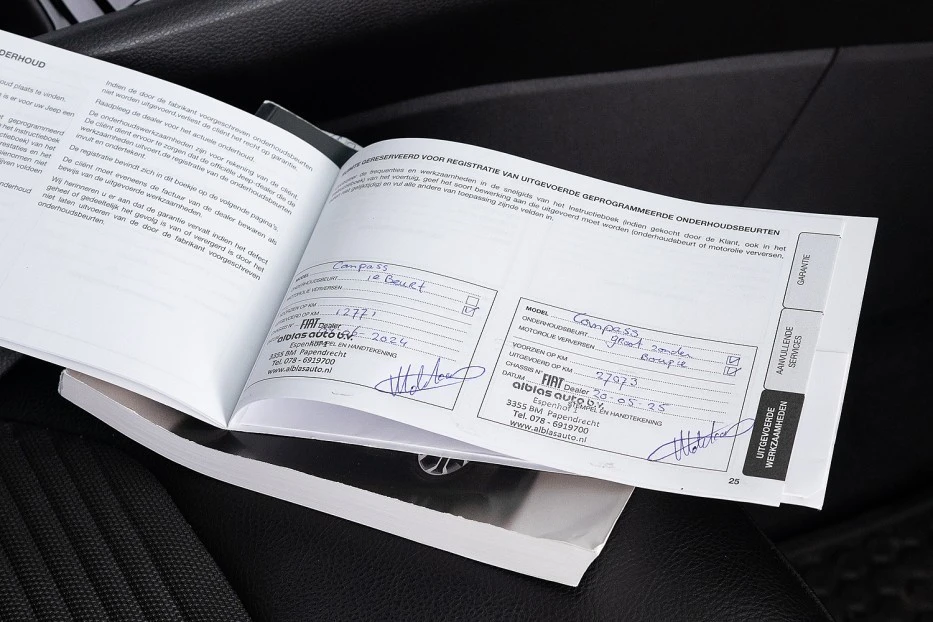 DERHOUD
oud plaats te vinden.
n is er voor uw Jeep een
et geprogrammeerd
n het Instructieboek
ctieboek) van het
restaties en het
ijven voldoen
nderhoud
Indien de door de fabrikant voorgeschreven onderhoudsbeurten
niet worden uitgevoerd, verliest de cliënt het recht op garantie.
Raadpleeg de dealer voor het actuele onderhoud.
De onderhoudswerkzaamheden zijn voor rekening van de cliënt.
De cliënt dient ervoor te zorgen dat de officiële Jeep-dealer, die de
werkzaamheden uitvoert, de registratie van de onderhoudsbeurten
invult en ondertekent.
De registratie bevindt zich in dit boekje op de volgende pagina's.
De cliënt moet eveneens de factuur van de dealer bewaren als
bewijs van de uitgevoerde werkzaamheden.
Wij herinneren u er aan dat de garantie vervalt indien het defect
geheel of gedeeltelijk het gevolg is van of verergerd is door het
niet laten uitvoeren van de door de fabrikant voorgeschreven
onderhoudsbeurten.
MTE GERESERVEERD VOOR REGISTRATIE VAN UITGEVOERDE GEPROGRAMMEERDE ONDERHOUDSBEURTEN
de frequenties en werkzaamheden in de snelgids van het Instructieboek (indien gekocht door de Klant, ook in het
van het voertuig, geef het soort bewerking aan die uitgevoerd moet worden (onderhoudsbeurt of motorolie verversen,
en vul alle andere van toepassing zijnde velden in.
MODEL Compass
ONDERHOUDSBEURT 1e Beurt
MOTOROLIE VERVERSEN
VOORZIEN OP KM
UITGEVOERD OP KM 12771
CHASSIS N°
FIAT Dealer
2024
alblas auto b.v.
STEMPEL EN HANDTEKENING
Espenhof 1
3355 BM Papendrecht
Tel. 078 - 6919700
www.alblasauto.nl
MODEL Compass
ONDERHOUDSBEURT groot zonder
MOTOROLIE VERVERSEN
VOORZIEN OP KM
UITGEVOERD OP KM 27073
CHASSIS N°
DATUM 20-05-25
FIAT Dealer
alblas auto b.v.
STEMPEL EN HANDTEKENING
Espenhof 1
3355 BM Papendrecht
Tel. 078 - 6919700
www.alblasauto.nl
25
GARANTIE
AANVULLENDE
SERVICES
UITGEVOERDE
WERKZAAMHEDEN